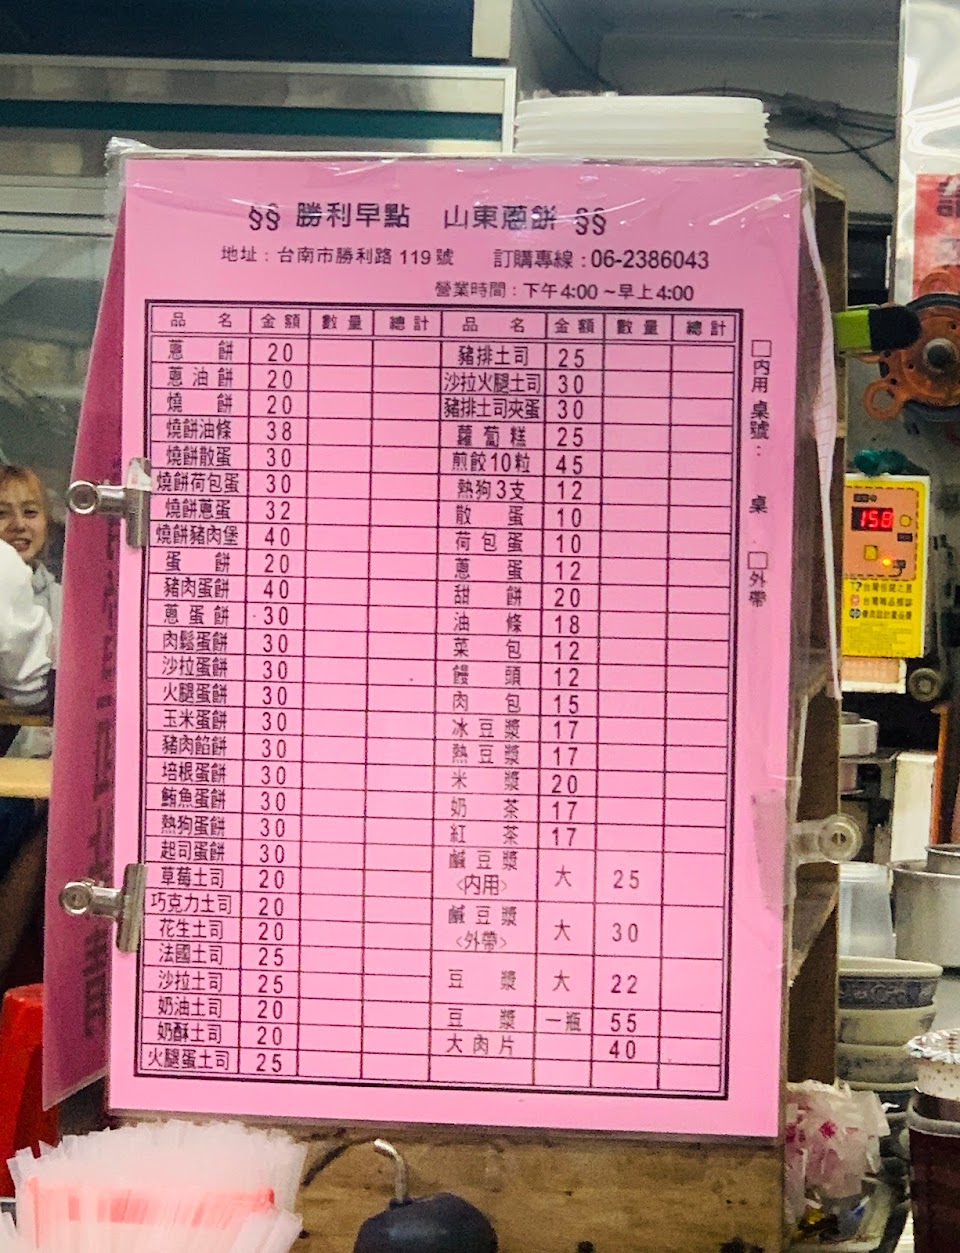 §§ 勝利早點 山東蔥餅 §§
地址：台南市勝利路 119 號 訂購專線：06-2386043
營業時間：下午4:00～早上4:00
品名 金額 數量 總計 品名 金額 數量 總計
蔥餅 20 豬排土司 25
蔥油餅 20 沙拉火腿土司 30
燒餅 20 豬排土司夾蛋 30
燒餅油條 38 蘿蔔糕 25
燒餅散蛋 30 煎餃10粒 45
燒餅荷包蛋 30 熱狗3支 12
燒餅蔥蛋 32 散蛋 10
燒餅豬肉堡 40 荷包蛋 10
蛋餅 20 蔥蛋 12
豬肉蛋餅 40 甜餅 20
蔥蛋餅 30 油條 18
肉鬆蛋餅 30 菜包 12
沙拉蛋餅 30 饅頭 12
火腿蛋餅 30 肉包 15
玉米蛋餅 30 冰豆漿 17
豬肉餡餅 30 熱豆漿 17
培根蛋餅 30 米漿 20
鮪魚蛋餅 30 奶茶 17
熱狗蛋餅 30 紅茶 17
起司蛋餅 30 鹹豆漿<內用> 大 25
草莓土司 20
巧克力土司 20 鹹豆漿<外帶> 大 30
花生土司 20
法國土司 25
沙拉土司 25 豆漿 大 22
奶油土司 20
奶酥土司 20 豆漿 一瓶 55
火腿蛋土司 25 大肉片 40
□內用 桌號： 桌 □外帶
158